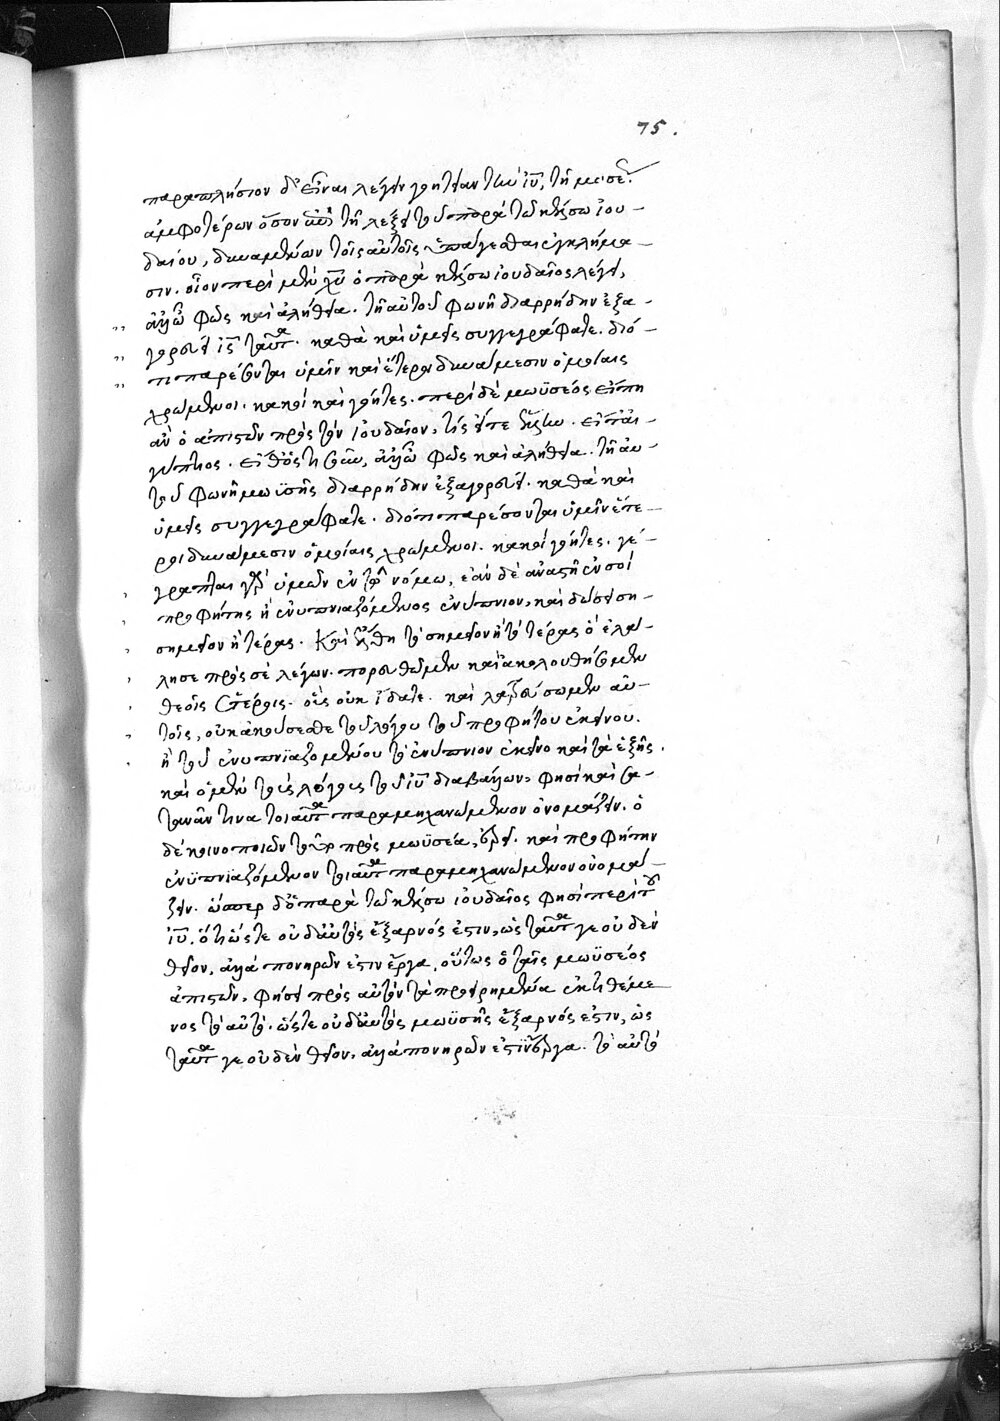 75.
παραπλήσιον δ' εἶναι λέγειν γοητείαν τὴν ἰῦ, τῇ μωσέ.
ἀμφοτέρων ὅσον ἐπὶ τῇ λέξει τοῦ παρὰ τῷ κέλσω ἰου-
δαίου, δυναμένων τοῖς αὐτοῖς ὑπάγεσθαι ἐγκλήμα-
σιν. οἷον περὶ μὲν χῦ ὁ παρὰ κέλσω ἰουδαῖος λέγει,
ἀλλ' ὦ φῶς καὶ ἀλήθεια. τῇ αὐτοῦ φωνῇ διαρρήδην ἐξα-
γορεύει ἰς ταῦτα. καθὰ καὶ ὑμεῖς συγγεγράφατε. διό-
τι παρέσονται ὑμῖν καὶ ἕτεροι δυνάμεσιν ὁμοίαις
χρώμενοι. κακοὶ καὶ γόητες. περὶ δὲ μωϋσέος εἴπῃ
ἂν ὁ ἀπιστῶν πρὸς τὸν ἰουδαῖον, εἴτ' αἰ-
γύπτιος. εἴθ' ὅστις οὖν, ἀλλ' ὦ φῶς καὶ ἀλήθεια. τῇ αὐ-
τοῦ φωνῇ μωϋσῆς διαρρήδην ἐξαγορεύει. καθὰ καὶ
ὑμεῖς συγγεγράφατε. διότι παρέσονται ὑμῖν ἕτε-
ροι δυνάμεσιν ὁμοίαις χρώμενοι. κακοὶ γόητες. γέ-
γραπται γὰρ ὑμῶν ἐν τῷ νόμω, ἐὰν δὲ ἀναστῇ ἐν σοί
προφήτης ἢ ἐνυπνιαζόμενος ἐνύπνιον, καὶ δώσει ση-
σημεῖον ἢ τέρας. καὶ ἔλθη τὸ σημεῖον ἢ τὸ τέρας ὃ ἐλά-
λησε πρὸς σὲ λέγων. πορευθῶμεν καὶ ἀκολουθήσωμεν
θεοῖς ἑτέροις. οἷς οὐκ οἴδατε. καὶ λατρεύσωμεν αὐ-
τοῖς, οὐκ ἀκούσεσθε τοῦ λόγου τοῦ προφήτου ἐκείνου.
ἢ τοῦ ἐνυπνϊαζομένου τὸ ἐνύπνιον ἐκεῖνο καὶ τὰ ἑξῆς.
καὶ ὁ μὲν τοὺς λόγους τοῦ ἰῦ διαβάλλων, φησὶ καὶ σα-
τανᾶν τινα τοιαῦτα παραμηχανώμενον ὀνομάζειν. ὁ
δὲ κοινοποιῶν τοῦτο πρὸς μωϋσέα, ἐρεῖ. καὶ προφήτην
ἐνϋπνϊαζόμενον τοιαῦτα παραμηχανώμενον ὀνομά-
ζειν. ὥσπερ δ' ὁ παρὰ τῷ κέλσω ἰουδαῖος φησὶ περὶ τοῦ
ἰῦ. ὅτι ὥστε οὐδ' αὐτὸς ἔξαρνός ἐστιν, ὡς ταῦτα γε οὐδὲν
θεῖον, ἀλλὰ πονηρῶν ἐστιν ἔργα, οὕτως ὁ τοῖς μωϋσέος
ἀπιστῶν, φήσει πρὸς αὐτὸν τὰ προειρημένα ἐκτιθέμε
νος τὸ αὐτό. ὥστε οὐδ' αὐτὸς μωϋσῆς ἔξαρνός ἐστιν, ὡς
ταῦτα γε οὐδὲν θεῖον, ἀλλὰ πονηρῶν ἐστὶν ἔργα. τὸ αὐτὸ